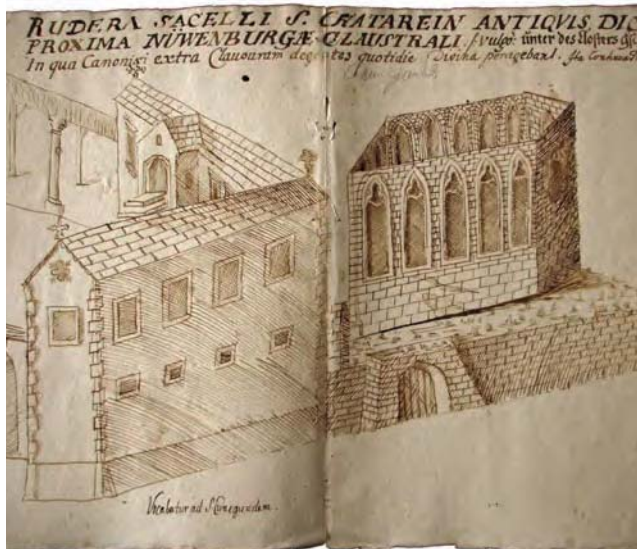 RUDERA SACELLI S. CHATAREIN ANTIQVIS DIC
PROXIMA NÜWENBURGÆ CLAUSTRALI vulgò: unter des Closters
In qua Canonici extra Clausuram degentes quotidie Divina peragebant.
Vocabatur ad S. Cunegundem.